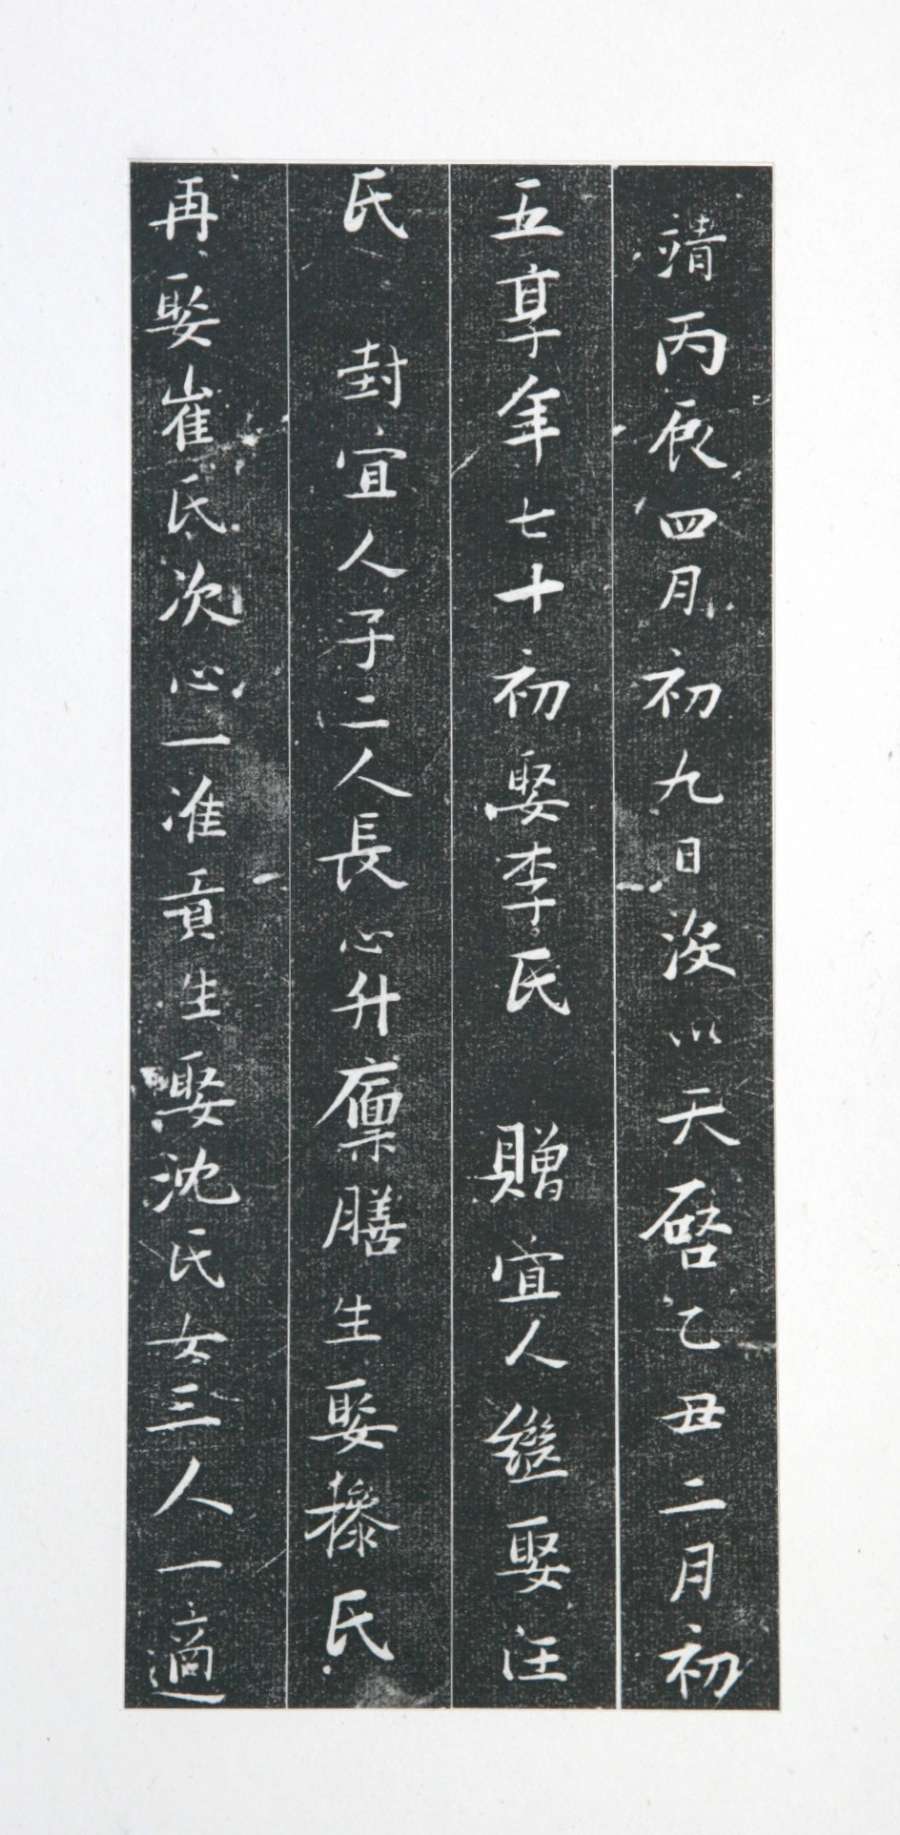 靖丙辰四月初九日沒以天啓乙丑二月初
五享年七十初娶李氏 贈宜人繼娶汪
氏 封宜人子二人長心升廩膳生娶操氏
再娶崔氏次心一准貢生娶沈氏女三人一適